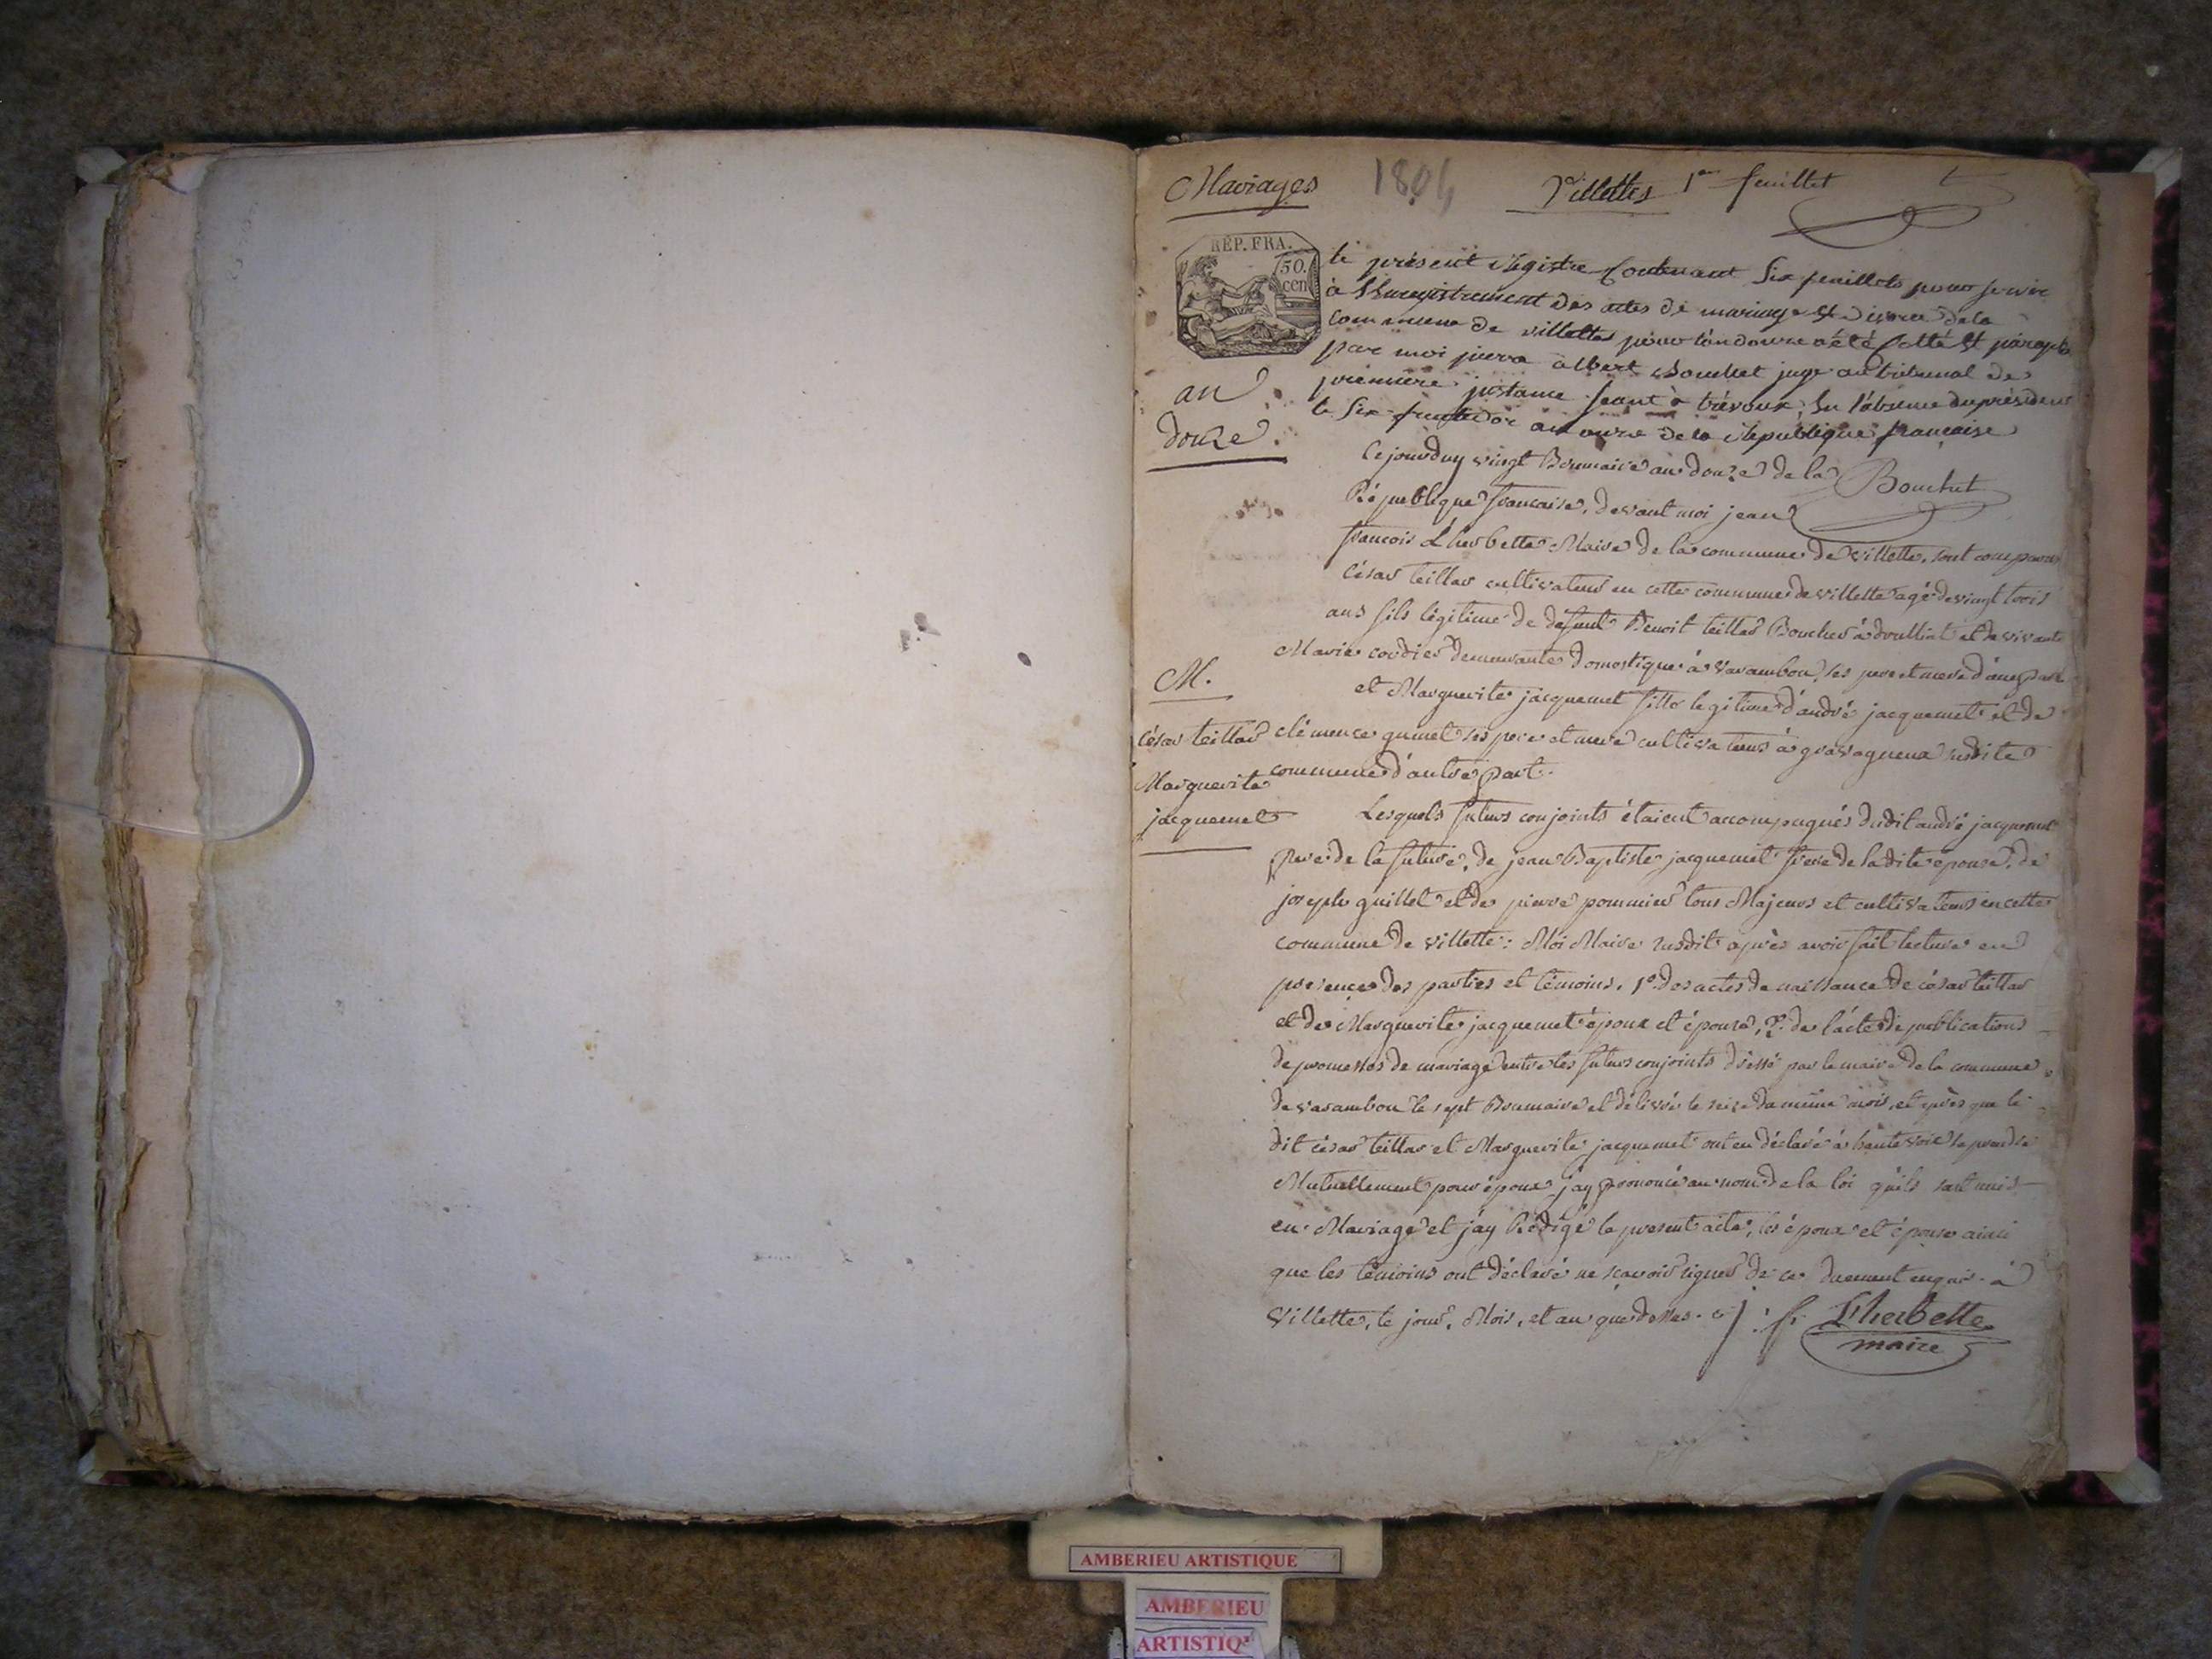 Mariages 1804 Villettes 1er feuillet
RÉP. FRA.
50.
cen
le présent Registre Contenant Six feuillets pour servir
à l'Enregistrement des actes de mariage et divorce de la
commune de villettes pour l'an douze a été Cotté et paraphé
par moi pierre albert Bouchet juge au tribunal de
première jnstance seant à trévoux, En l'absence du président
le Six fructidor an onze de la Republique française
Bouchet
an
douze.
Cejourduy vingt Brumaire an douze de la
République francaise, devant moi jean
francois L'herbette Maire de la commune de villette, sont comparus
César teillar cultivateur en cette commune de villette agé de vingt trois
ans fils légitime de defunt Benoit teillar Boucher à druilliat et de vivante
Marie cordier demeurante domestique à varambon, ses pere et mere d'une part
et Marguerite jacquemet fille legitime d'andré jacquemet et de
clémence guinet ses pere et mere cultivateurs à gravagneux susdite
commune d'autre part.
M.
César teillar
Marguerite
jacquemet
Lesquels futurs conjoints étaient accompagnés dudit andré jacquemet
Pere de la future, de jean Baptiste jacquemet frere de ladite epouse, de
joseph guillet et de pierre pommier tous Majeurs et cultivateurs en cette
commune de villette: Moi Maire susdit après avoir fait lecture en
presence des parties et témoins, 1º. des actes de naissance de césar teillar
et de Marguerite jacquemet époux et épouse, 2º. de l'acte de publications
de promesses de mariage entre les futurs conjoints dressé par le maire de la commune
de varambon le sept Brumaire et délivré le seize du même mois, et après que le
dit césar teillar et Marguerite jacquemet ont eu déclaré à haute voix se prendre
Mutuellement pour époux j'ay Prononcé au nom de la loi qu'ils sont unis
en Mariage et j'ay Rédigé le present acte, les époux et épouse ainsi
que les témoins ont déclaré ne scavoir signer de ce duement enquis. à
Villette, le jour, Mois, et an que dessus. j: f: L'herbette
maire
AMBERIEU ARTISTIQUE
AMBERIEU
ARTISTIQ